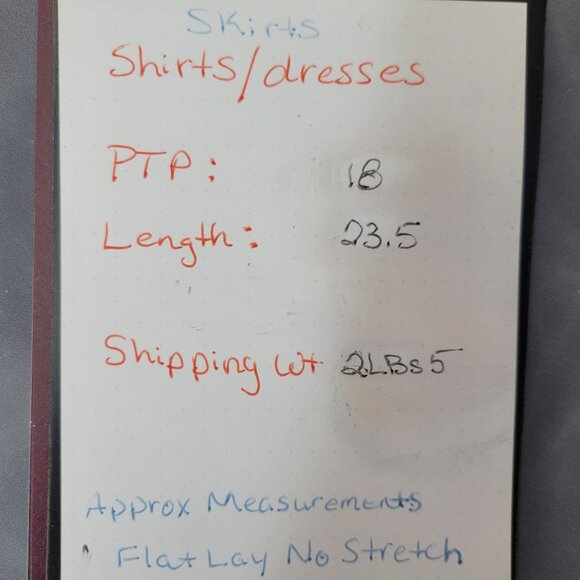 Skirts
Shirts/dresses
PTP: 18
Length: 23.5
Shipping Wt 2LBs 5
Approx Measurements
Flat Lay No Stretch